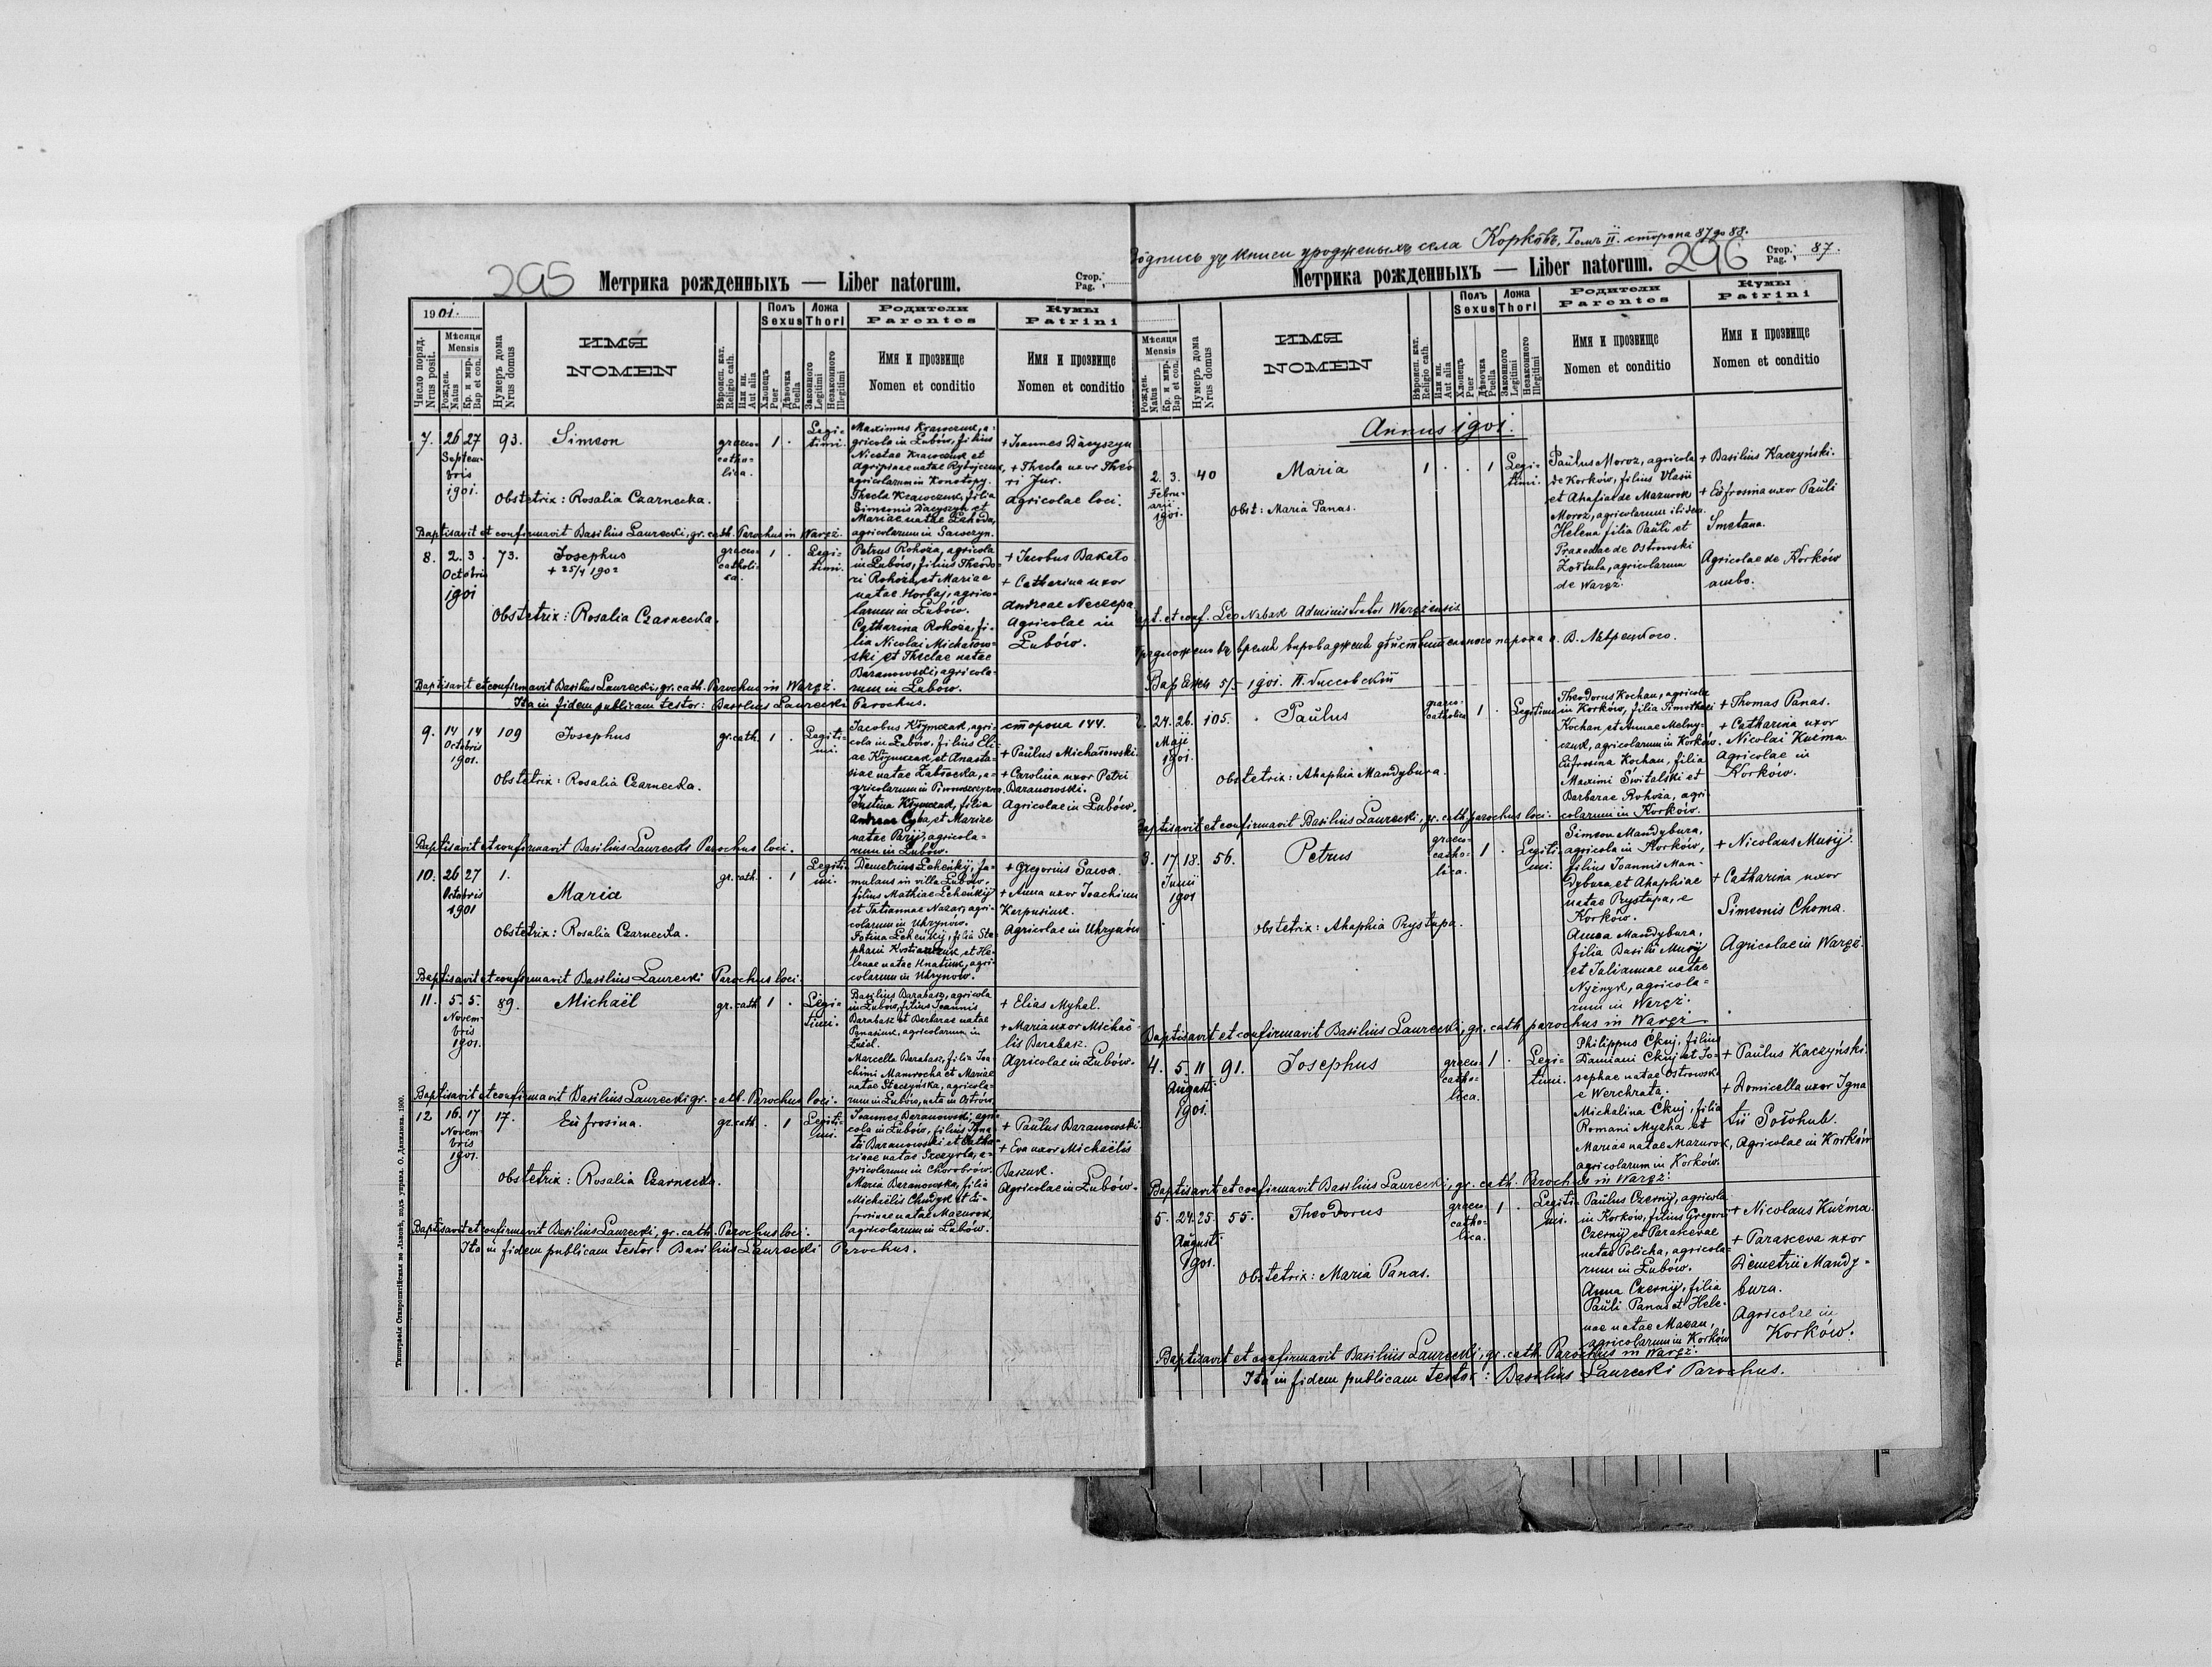 295 Метрика рожденныхъ — Liber natorum. Стор. Pag.
1901.
Число поряд. Nrus posit.
Мѣсяця Mensis
Рожден. Natus
Кр. и мир. Bap et con.
Нумеръ дома Nrus domus
ИМЯ NOMEN
Вѣроисп. кат. Religio cath.
Или ин. Aut alia
Полъ Sexus
Хлопецъ Puer
Дѣвочка Puella
Ложа Thori
Законного Legitimi
Незаконного Illegitimi
Родители Parentes
Имя и прозвище Nomen et conditio
Кумы Patrini
Имя и прозвище Nomen et conditio
7. 26 27 Septembris 1901. 93. Simeon
graeco-catholica. 1 . Legitimi.
Maximus Krawczuk, a-
gricola in Łubów, filius
Nicetae Krawczuk et
Agripinae natae
agricolarum in Konotopy.
Thecla Krawczuk, filia
Simeonis Dacyszyn et
Mariae natae
agricolarum in Sawczyn.
+ Ioannes Dacyszyn
+ Thecla uxor Theo-
ri Jur.
Agricolae loci.
Obstetrix: Rosalia Czarnecka.
Baptisavit et confirmavit Basilius Laurecki, gr. cath. Parochus in Waręż.
8. 2. 3. Octobris 1901 73. Josephus
+ 25/4 1902
graeco-catholica. 1 . Legitimi.
Petrus Rohoża, agricola
in Łubów, filius Theodo-
ri Rohoża, et Mariae
natae Horbaj, agrico-
larum in Łubów.
Catharina Rohoża, fi-
lia Nicolai Michałow-
ski et Theclae natae
Baranowski, agricola-
rum in Łubów.
+ Jacobus Bakało
+ Catherina uxor
Andreae Neczepa
Agricolae in
Łubów.
Obstetrix: Rosalia Czarnecka.
Baptisavit et confirmavit Basilius Laurecki, gr. cath. Parochus in Waręż.
Ita in fidem publicam testor: Basilius Laurecki Parochus.
9. 14 14 Octobris 1901. 109 Josephus
gr. cath. 1 . Legitimi.
Jacobus Kłymczak, agri-
cola in Łubów, filius Eli-
ae Kłymczak et Anasta-
siae natae Zabłocka, a-
gricolarum in
Justina Kłymczak, filia
Andreae Cyba, et Mariae
natae Paryj, agricola-
rum in Łubów.
сторона 144.
+ Paulus Michałowski.
+ Carolina uxor Petri
Baranowski.
Agricolae in Łubów.
Obstetrix: Rosalia Czarnecka.
Baptisavit et confirmavit Basilius Laurecki Parochus loci.
10. 26 27 Octobris 1901 1. Maria
gr. cath. . 1 Legitimi.
Demetrius Łeheńkij, fa-
mulans in villa Łubów,
filius Mathiae Łeheńkij
et Tatiannae Nazar, agri-
colarum in Uhrynów.
Fotina Łeheńkij, filia Ste-
phani et He-
lenae natae Hnatiuk, agri-
colarum in Uhrynów.
+ Gregorius Sawa.
+ Anna uxor Joachimi
Karpusiuk.
Agricolae in Uhrynów
Obstetrix: Rosalia Czarnecka.
Baptisavit et confirmavit Basilius Laurecki Parochus loci.
11. 5. 5. Novembris 1901. 89. Michaël
gr. cath 1 . Legitimi.
Basilius Barabasz, agricola
in Łubów, filius Joannis
Barabasz et Barbarae natae
Panasiuk, agricolarum in
Marcella Barabasz, filia Joa-
chimi Mamrocha et Mariae
natae Steczyńska, agricola-
rum in Łubów, nata in Ostrów.
+ Elias Myhal.
+ Maria uxor Michaë-
lis Barabasz.
Agricolae in Łubów.
Baptisavit et confirmavit Basilius Laurecki gr. cath. Parochus loci.
12. 16. 17 Novembris 1901. 17. Eufrosina.
gr. cath. . 1 Legitimi.
Joannes Baranowski, agri-
cola in Łubów, filius Igna-
tii Baranowski et Catha-
rinae natae Szczyrba, a-
gricolarum in Chorobrów.
Maria Baranowska, filia
Michaëlis Chudyk et Eu-
frosinae natae Mazurok,
agricolarum in Łubów.
+ Paulus Baranowski
+ Eva uxor Michaëlis
Baszuk.
Agricolae in Łubów.
Obstetrix: Rosalia Czarnecka.
Baptisavit et confirmavit Basilius Laurecki, gr. cath. Parochus loci.
Ita in fidem publicam testor: Basilius Laurecki Parochus.
Типографія Ставропигійская во Львовѣ, подъ управл. О. Данилюка. 1900.
книги уродженыхъ села Корковъ, Томъ II. сторона 87 до 88.
Метрика рожденныхъ — Liber natorum. 296 Стор. Pag. 87.
Мѣсяця Mensis
Рожден. Natus
Кр. и мир. Bap et con.
Нумеръ дома Nrus domus
ИМЯ NOMEN
Вѣроисп. кат. Religio cath.
Или ин. Aut alia
Полъ Sexus
Хлопецъ Puer
Дѣвочка Puella
Ложа Thori
Законного Legitimi
Незаконного Illegitimi
Родители Parentes
Имя и прозвище Nomen et conditio
Кумы Patrini
Имя и прозвище Nomen et conditio
Annus 1901.
2. 3. Februarii 1901. 40 Maria
1 . . 1 Legitimi.
Paulus Moroz, agricola
de Korków, filius Vlasii
et Ahafiae de Mazurok
Moroz, agricolarum ibidem.
Helena filia Pauli et
Praxedae de Ostrowski
Zołtula, agricolarum
de Waręż.
+ Basilius Kaczyński.
+ Eufrosina uxor Pauli
Smetana.
Agricolae de Korków
ambo.
Obst: Maria Panas.
Bapt. et conf. Leo Nabak Administrator Warężensis
Предложено въ время
Варяжъ 5/5 1901.
2. 24. 26. Maji 1901. 105. Paulus
graeco-catholica 1 . Legitimi
Theodorus Kochan, agricola
in Korków, filia Timothaei
Kochan et Annae Melny-
czuk, agricolarum in Korków.
Eufrosina Kochan, filia
Maximi Świtalski et
Barbarae Rohoża, agri-
colarum in Korków.
+ Thomas Panas.
+ Catharina uxor
Nicolai Kuźma.
Agricolae in
Korków.
Obstetrix: Ahaphia Mandybura.
Baptisavit et confirmavit Basilius Laurecki, gr. cath. parochus loci.
3. 17 18. Junii 1901 56. Petrus
graeco-catholica. 1 . Legitimi.
Simeon Mandybura,
agricola in Korków,
filius Joannis Man-
dybura, et Ahaphiae
natae Prystupa, e
Korków.
Anna Mandybura,
filia Basilii Musij
et Juliannae natae
Nyżnyk, agricola-
rum in Waręż.
+ Nicolaus Musij.
+ Catharina uxor
Simeonis Choma.
Agricolae in Waręż.
Obstetrix: Ahaphia Prystupa.
Baptisavit et confirmavit Basilius Laurecki, gr. cath. parochus in Waręż
4. 5. 11 Augusti 1901. 91. Josephus
graeco-catholica. 1 . Legitimi.
Philippus Ckuj, filius
Damiani Ckuj et Jo-
sephae natae Ostrowski
e Werchrata.
Michalina Ckuj, filia
Romani Mycha et
Mariae natae Mazurok,
agricolarum in Korków.
+ Paulus Kaczyński.
+ Domicella uxor Igna
tii Sołohub.
Agricolae in Korków
Baptisavit et confirmavit Basilius Laurecki, gr. cath. Parochus in Waręż.
5. 24. 25. Augusti 1901. 55. Theodorus
graeco-catholica. 1 . Legitimi.
Paulus Czernij, agricola
in Korków, filius Gregorii
Czernij et Parascevae
natae Policha, agricola-
rum in Łubów.
Anna Czernij, filia
Pauli Panas et Hele-
nae natae Mazan,
agricolarum in Korków
+ Nicolaus Kuźma.
+ Parasceva uxor
Demetrii Mandy-
bura.
Agricolae in
Korków.
Obstetrix: Maria Panas.
Baptisavit et confirmavit Basilius Laurecki, gr. cath. Parochus in Waręż.
Ita in fidem publicam testor: Basilius Laurecki Parochus.